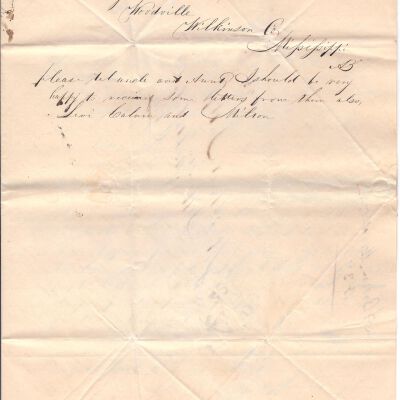 Woodville
Wilkinson Co.
Mississippi
please tel uncle and Aunt I should be very
happy to receive some letters from them also,
Levi Calvin and Milton